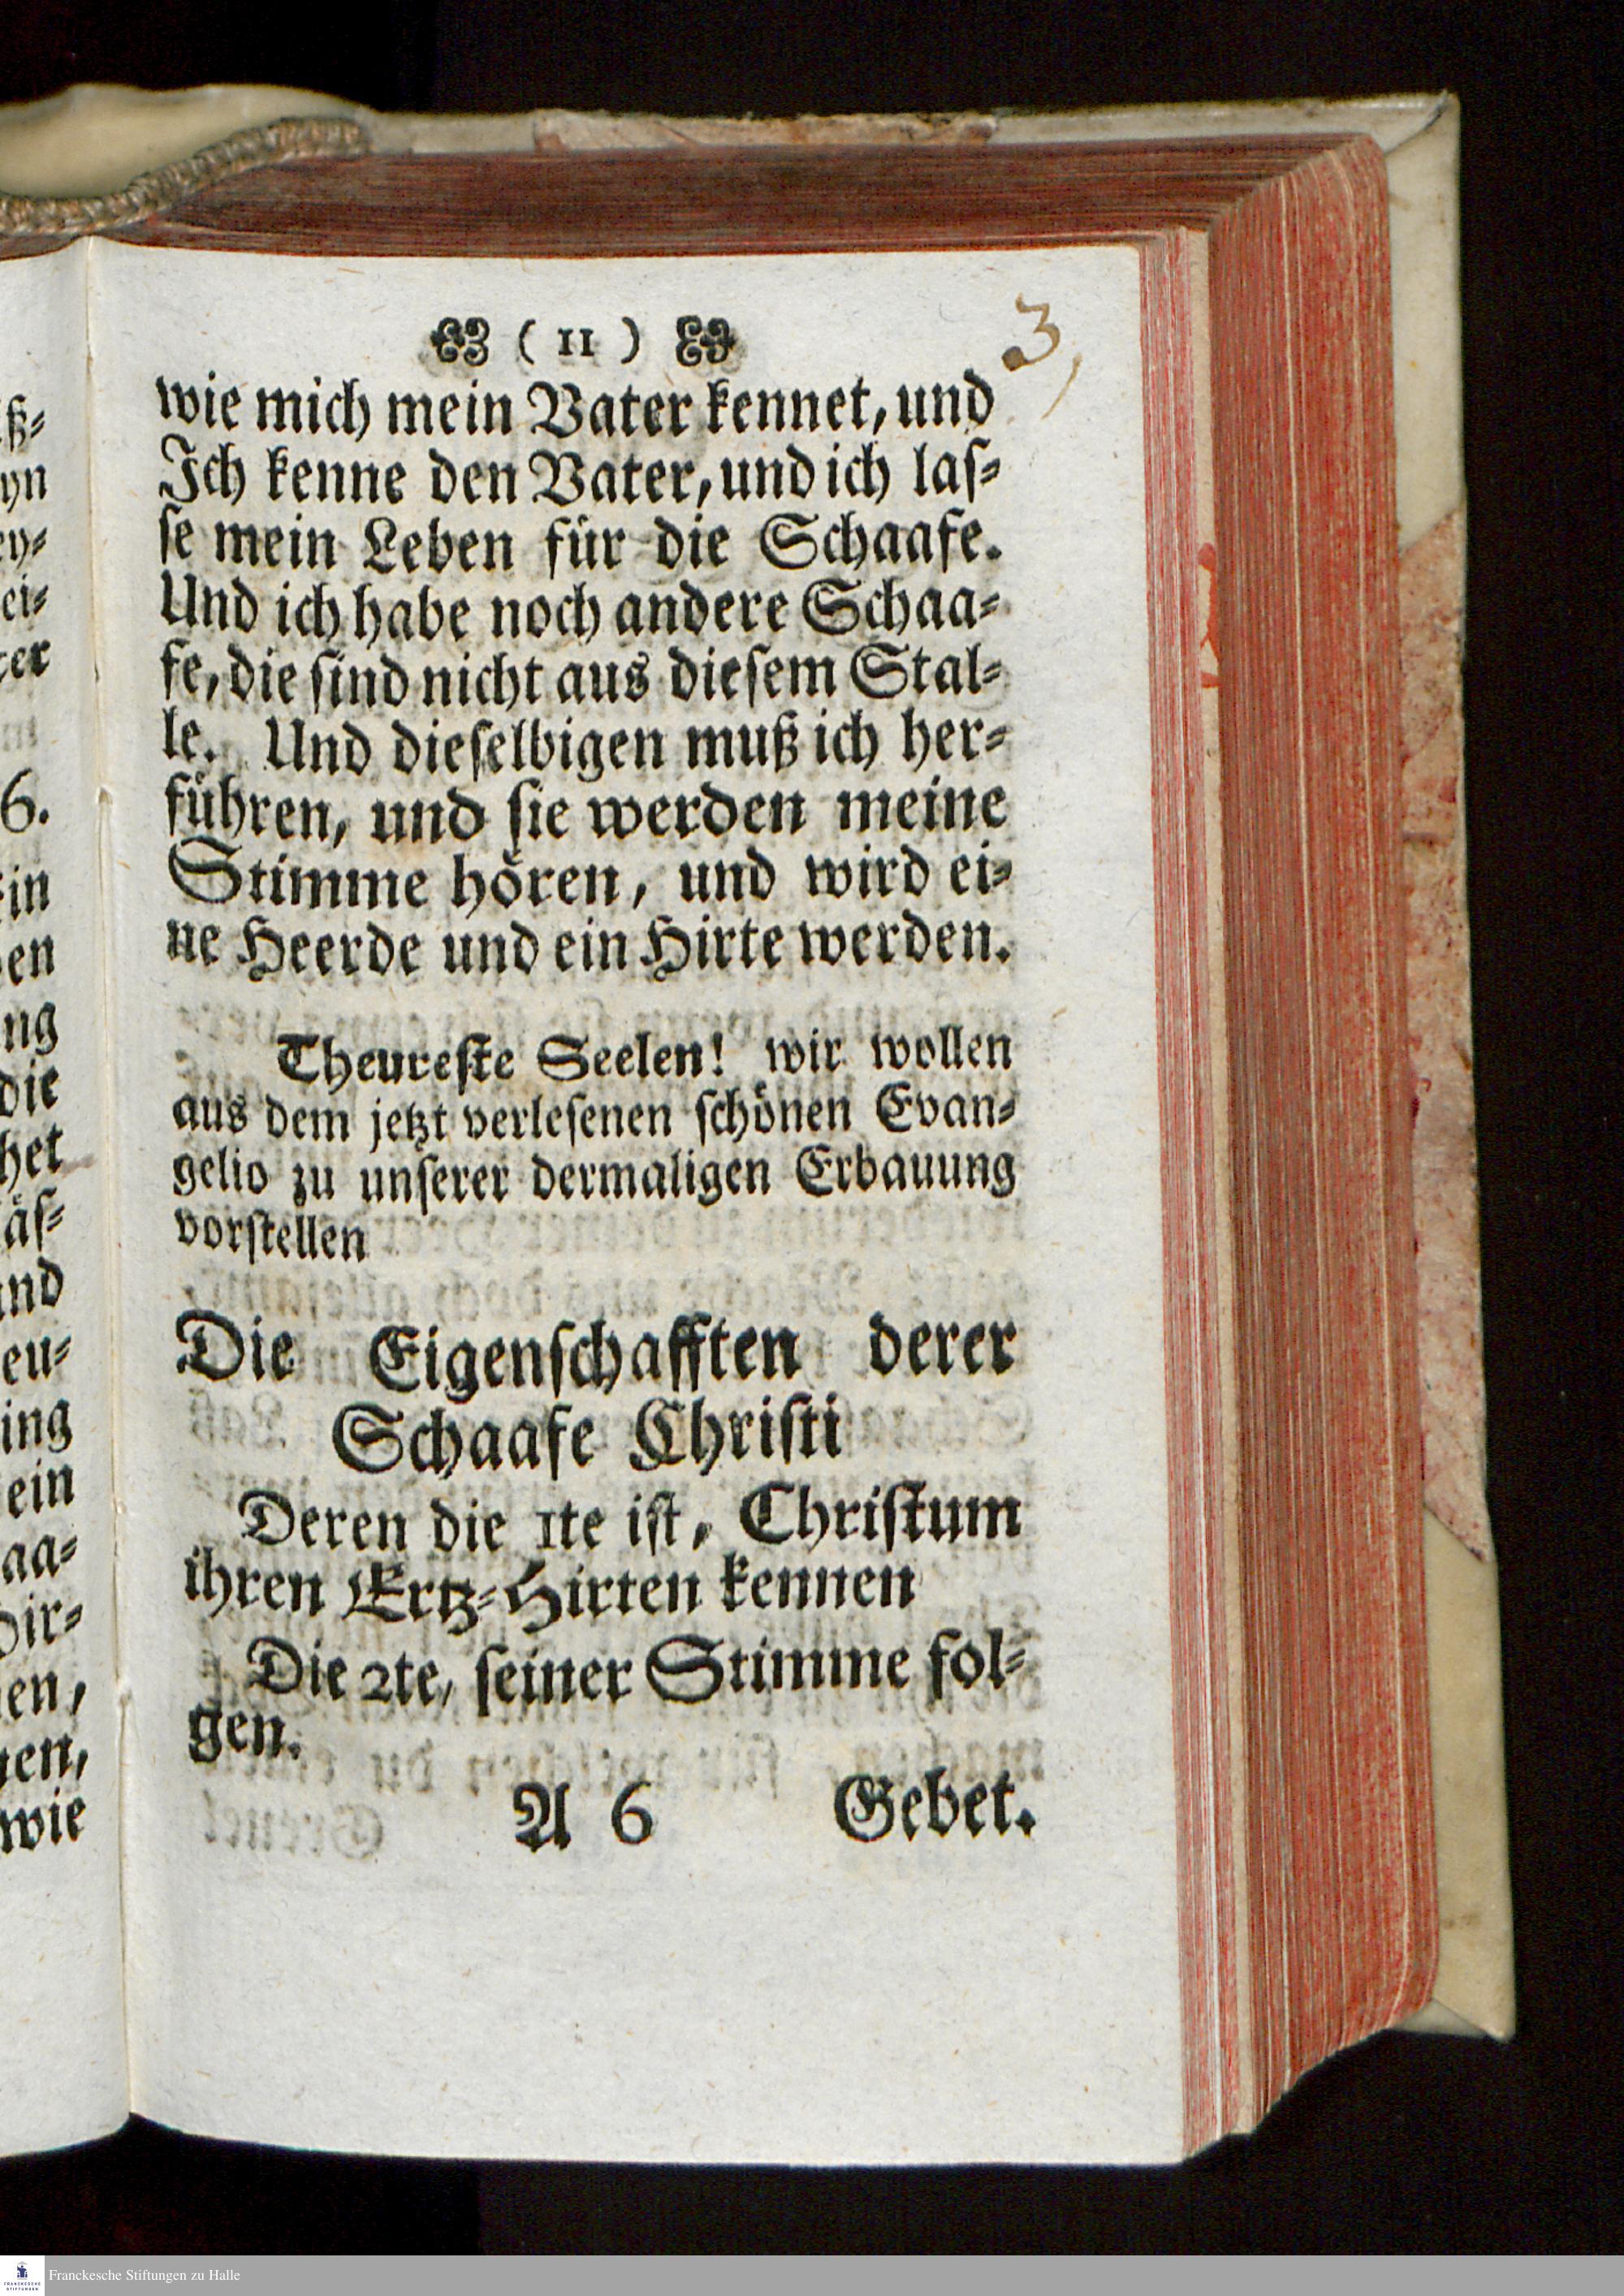 ( 11 )
3,
wie mich mein Vater kennet, und
Ich kenne den Vater, und ich las-
se mein Leben für die Schaafe.
Und ich habe noch andere Schaa-
fe, die sind nicht aus diesem Stal-
le. Und dieselbigen muß ich her-
führen, und sie werden meine
Stimme hören, und wird ei-
ne Heerde und ein Hirte werden.
Theureste Seelen! wir wollen
aus dem jetzt verlesenen schönen Evan-
gelio zu unserer dermaligen Erbauung
vorstellen
Die Eigenschafften derer
Schaafe Christi
Deren die 1te ist, Christum
ihren Ertz-Hirten kennen
Die 2te, seiner Stimme fol-
gen.
A 6 Gebet.
ß-
yn
ey-
ei-
ter
6.
in
en
ng
die
het
äs-
und
eu-
ing
ein
aa-
Hir-
en,
nen,
wie
FRANCKESCHE
STIFTUNGEN
Franckesche Stiftungen zu Halle